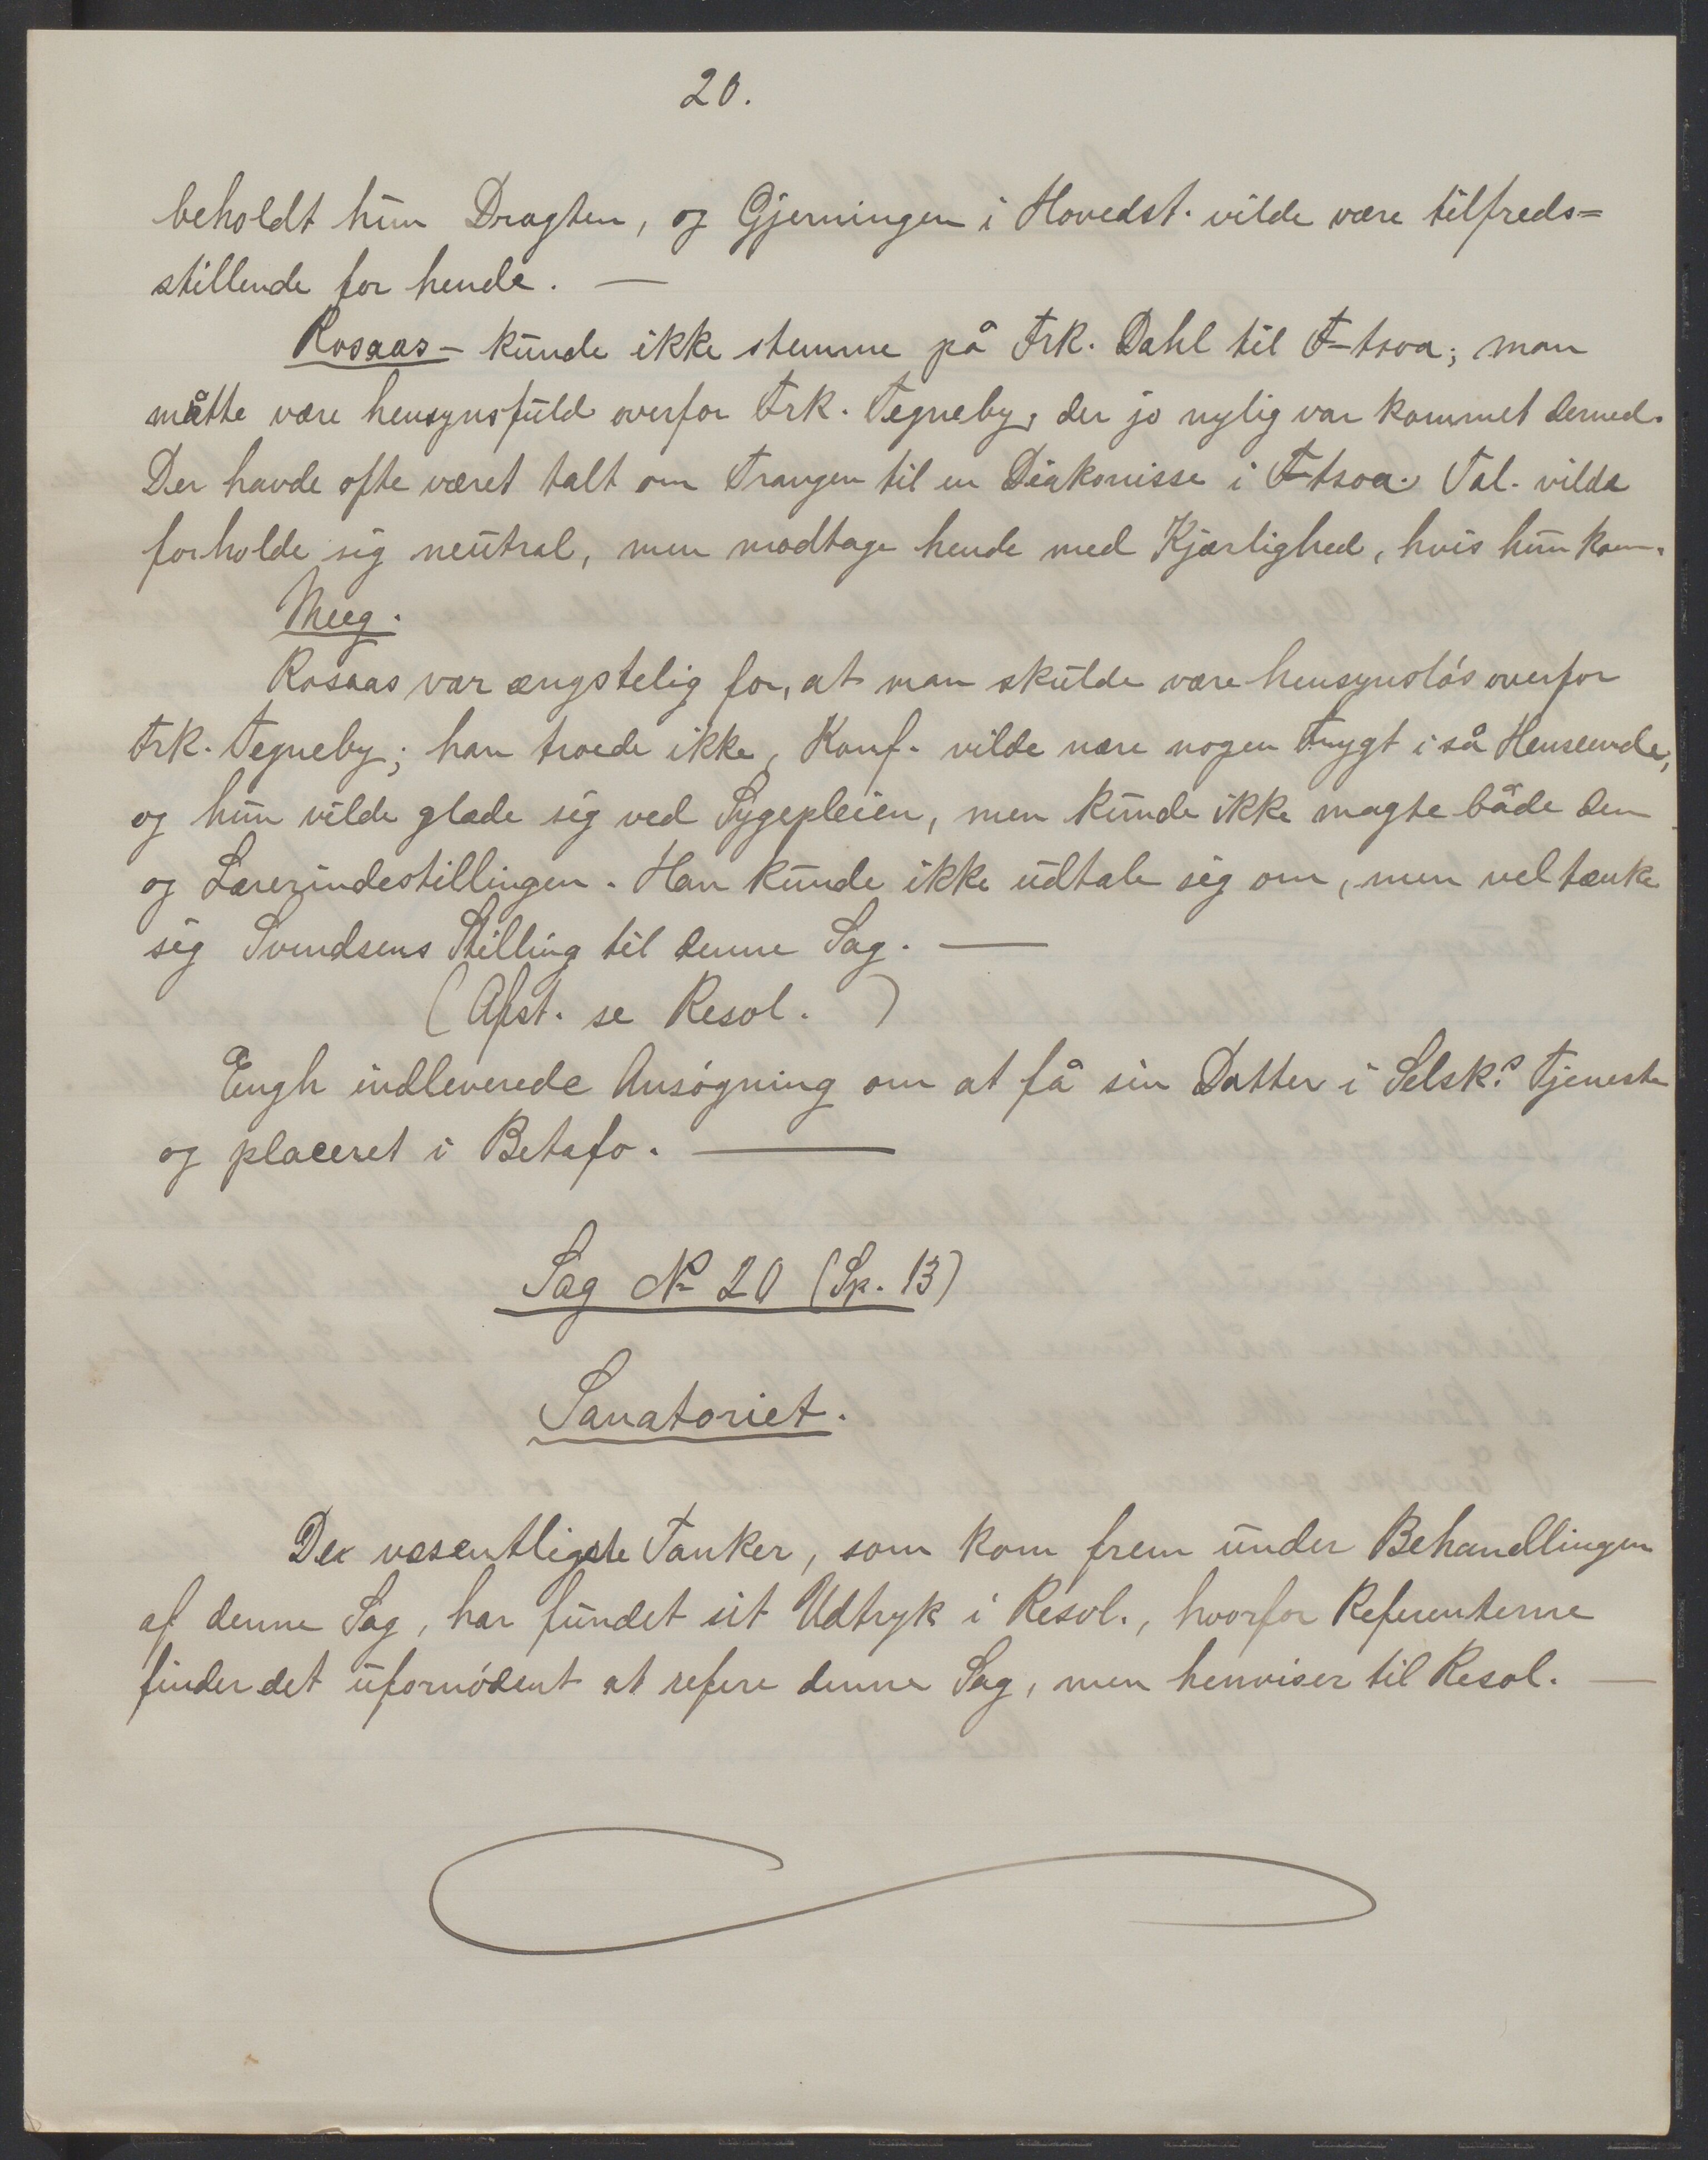 20.
beholdt hun Dragten, og Gjerningen i Hovedst. vilde være tilfreds=
stillende for hende. —
Rosaas – kunde ikke stemme på Frk. Dahl til F-tsoa; man
måtte være hensynsfuld overfor Frk. Tegneby, der jo nylig var kommet derned.
Der havde ofte været talt om Trangen til en Diakonisse i F-tsoa. Tal. vilde
forholde sig neutral, men modtage hende med Kjærlighed, hvis hun kom.
Meeg.
Rosaas var ængstelig for, at man skulde være hensynsløs overfor
Frk. Tegneby; han troede ikke, Konf. vilde nære nogen Frygt i så Henseende,
og hun vilde glæde sig ved Sygepleien, men kunde ikke magte både den
og Lærerindestillingen. Han kunde ikke udtale sig om, men vel tænke
sig Svendsens Stilling til denne Sag. —
(Afst. se Resol. )
Engh indleverede Ansøgning om at få sin Datter i Selsk.s Tjeneste
og placeret i Betafo. —
Sag No 20 (Sp. 13)
Sanatoriet.
De væsentligste Tanker, som kom frem under Behandlingen
af denne Sag, har fundet sit Udtryk i Resol., hvorfor Referenterne
finder det ufornødent at refere denne Sag, men henviser til Resol. —